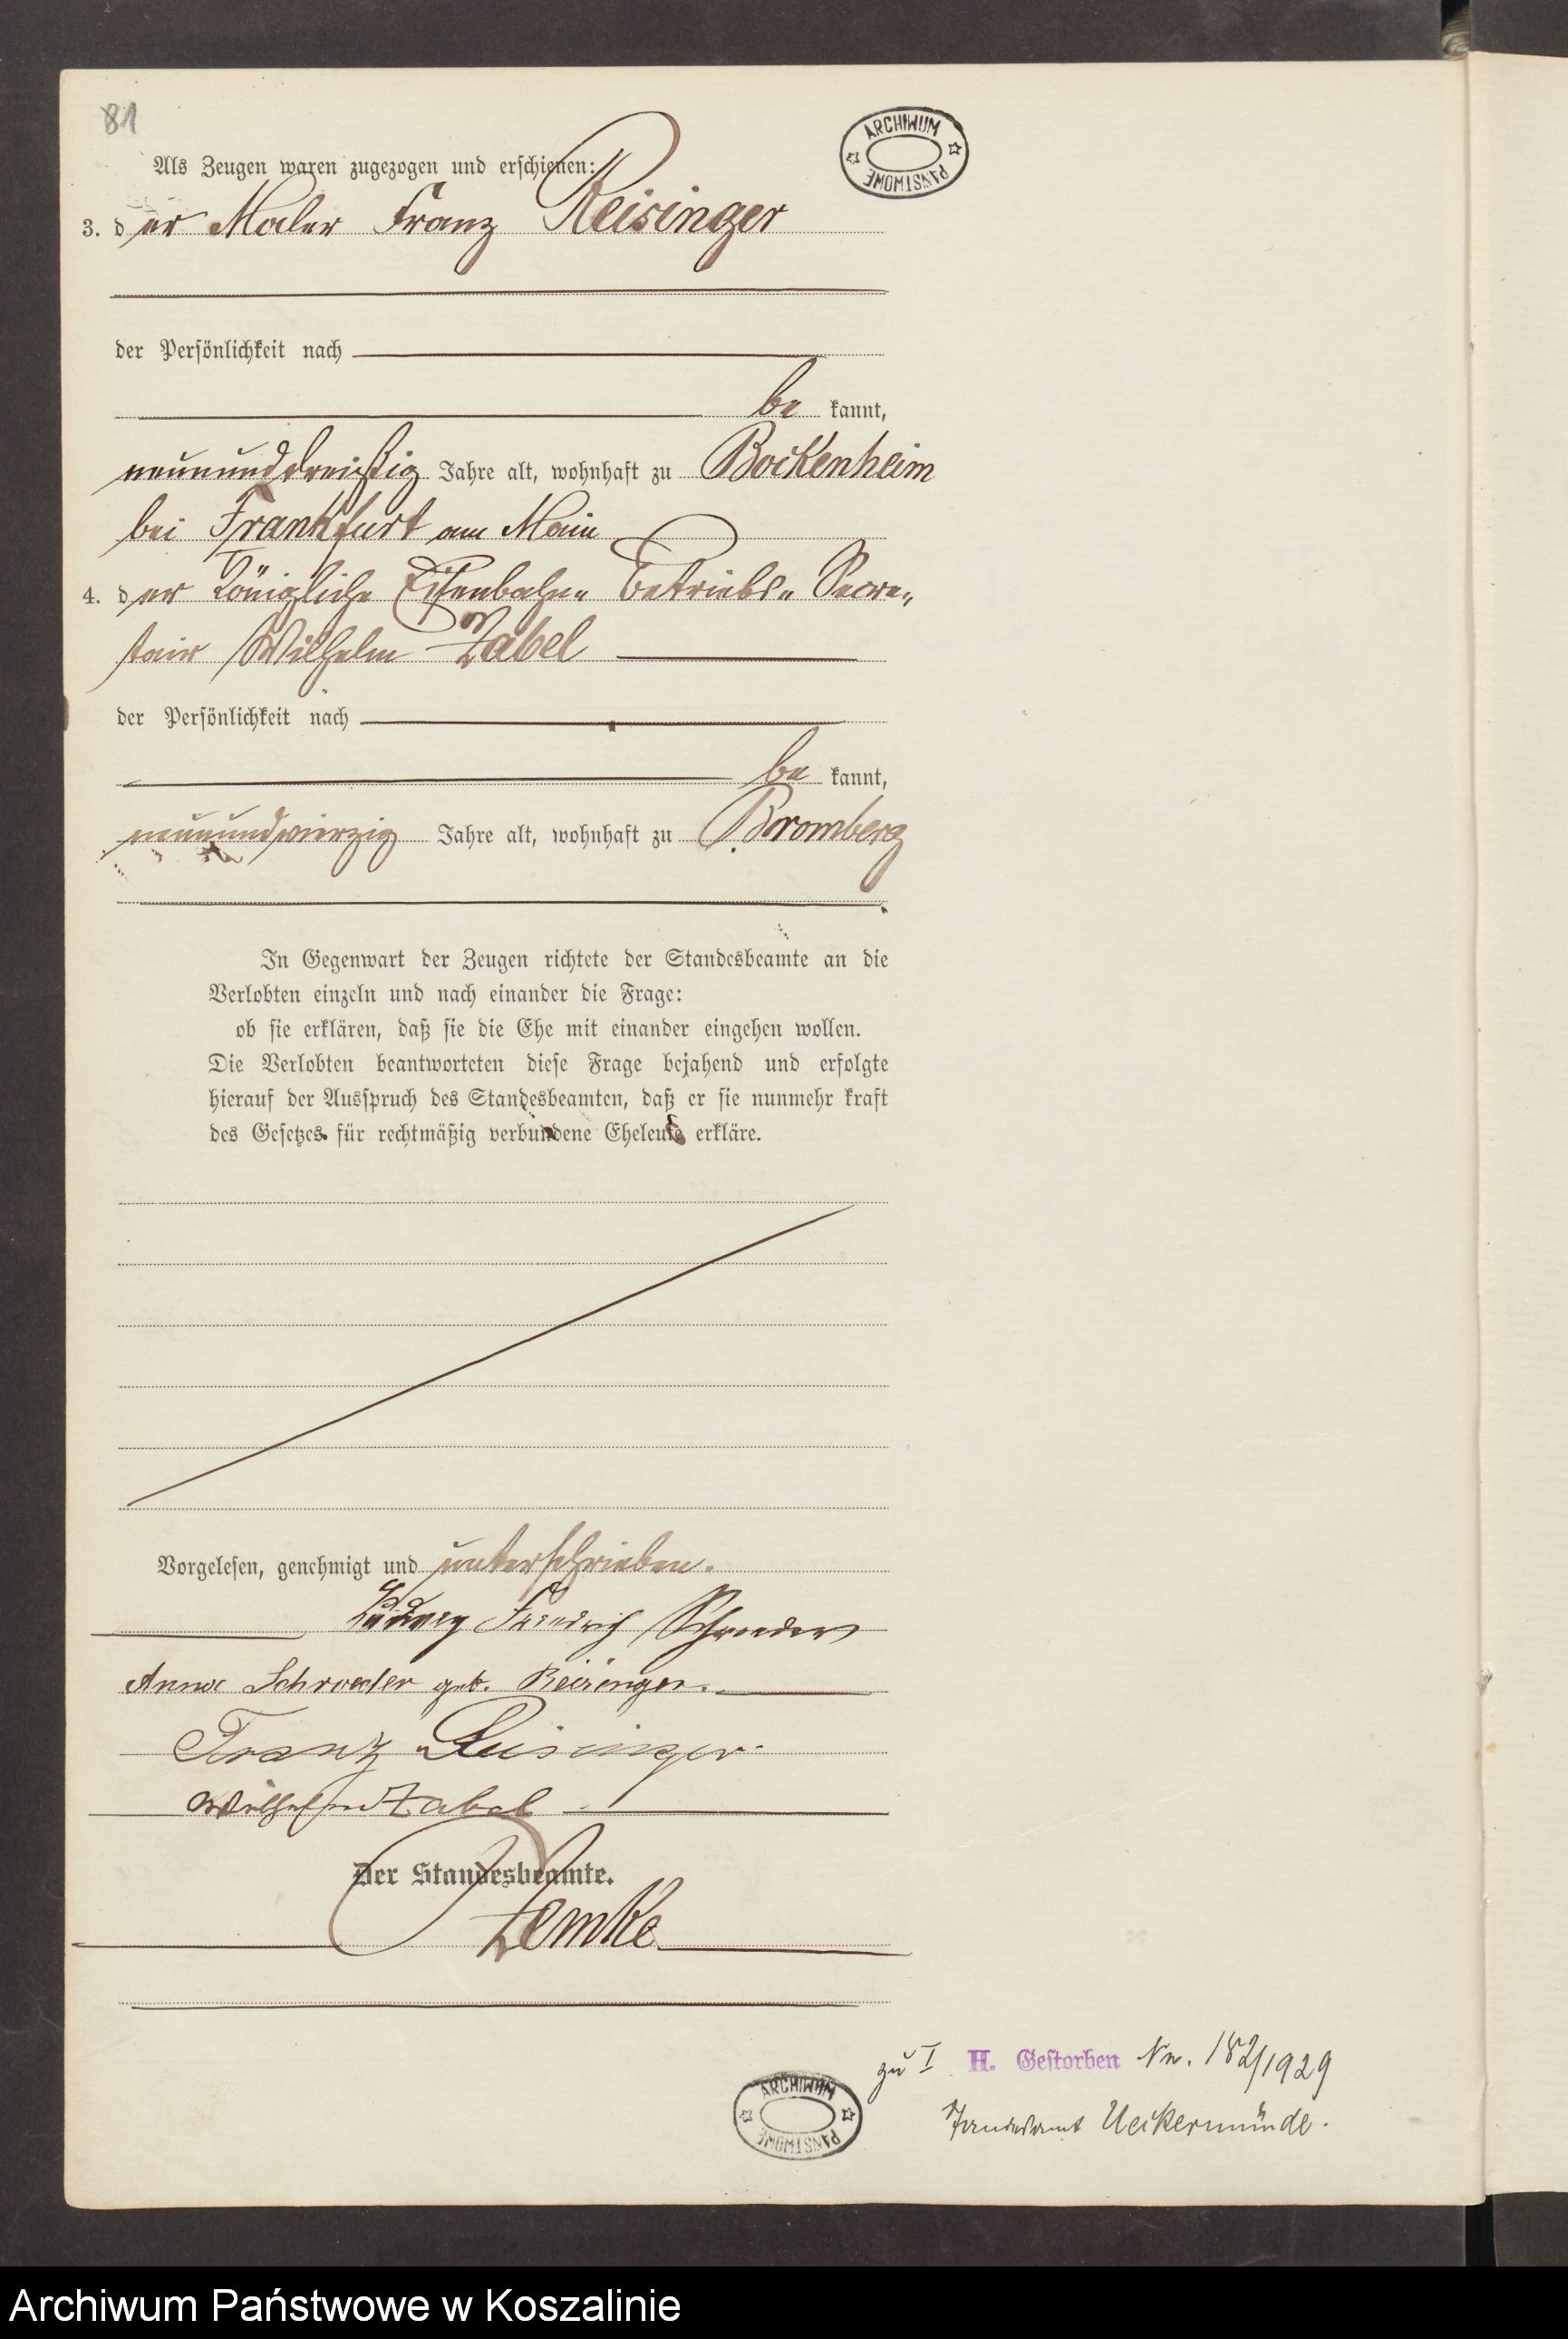 81
ARCHIWUM PAŃSTWOWE
Als Zeugen waren zugezogen und erschienen:
3. der Maler Franz Reisinger
der Persönlichkeit nach
be kannt,
neununddreißig Jahre alt, wohnhaft zu Bockenheim
bei Frankfurt am Main
4. der Königliche Eisenbahn„ Betriebs„ Secre„
tair Wilhelm Zabel
der Persönlichkeit nach
be kannt,
neunundvierzig Jahre alt, wohnhaft zu Bromberg
In Gegenwart der Zeugen richtete der Standesbeamte an die
Verlobten einzeln und nach einander die Frage:
ob sie erklären, daß sie die Ehe mit einander eingehen wollen.
Die Verlobten beantworteten diese Frage bejahend und erfolgte
hierauf der Ausspruch des Standesbeamten, daß er sie nunmehr kraft
des Gesetzes für rechtmäßig verbundene Eheleute erkläre.
Vorgelesen, genehmigt und unterschrieben.
Ludwig Friedrich Schroeder
Anna Schroeder geb. Reisinger.
Franz Reisinger.
Wilhelm Zabel
Der Standesbeamte.
Zemke
zu I H. Gestorben Nr. 182/1929
Standesamt Ueckermünde.
ARCHIWUM PAŃSTWOWE
Archiwum Państwowe w Koszalinie